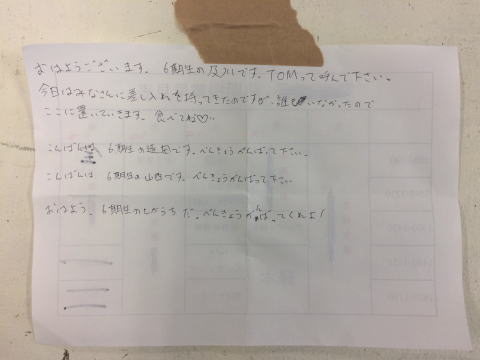 おはようございます。6期生の及川です。TOMって呼んで下さい。
今日はみなさんに差し入れを持ってきたのですが、誰もいなかったので
ここに置いていきます。食べてね♡
こんばんは 6期生の です。べんきょうがんばって下さい。
こんばんは 6期生の山西です。べんきょうがんばって下さい
おはよう。6期生のしがうちだ。べんきょうがんばってくれよ!